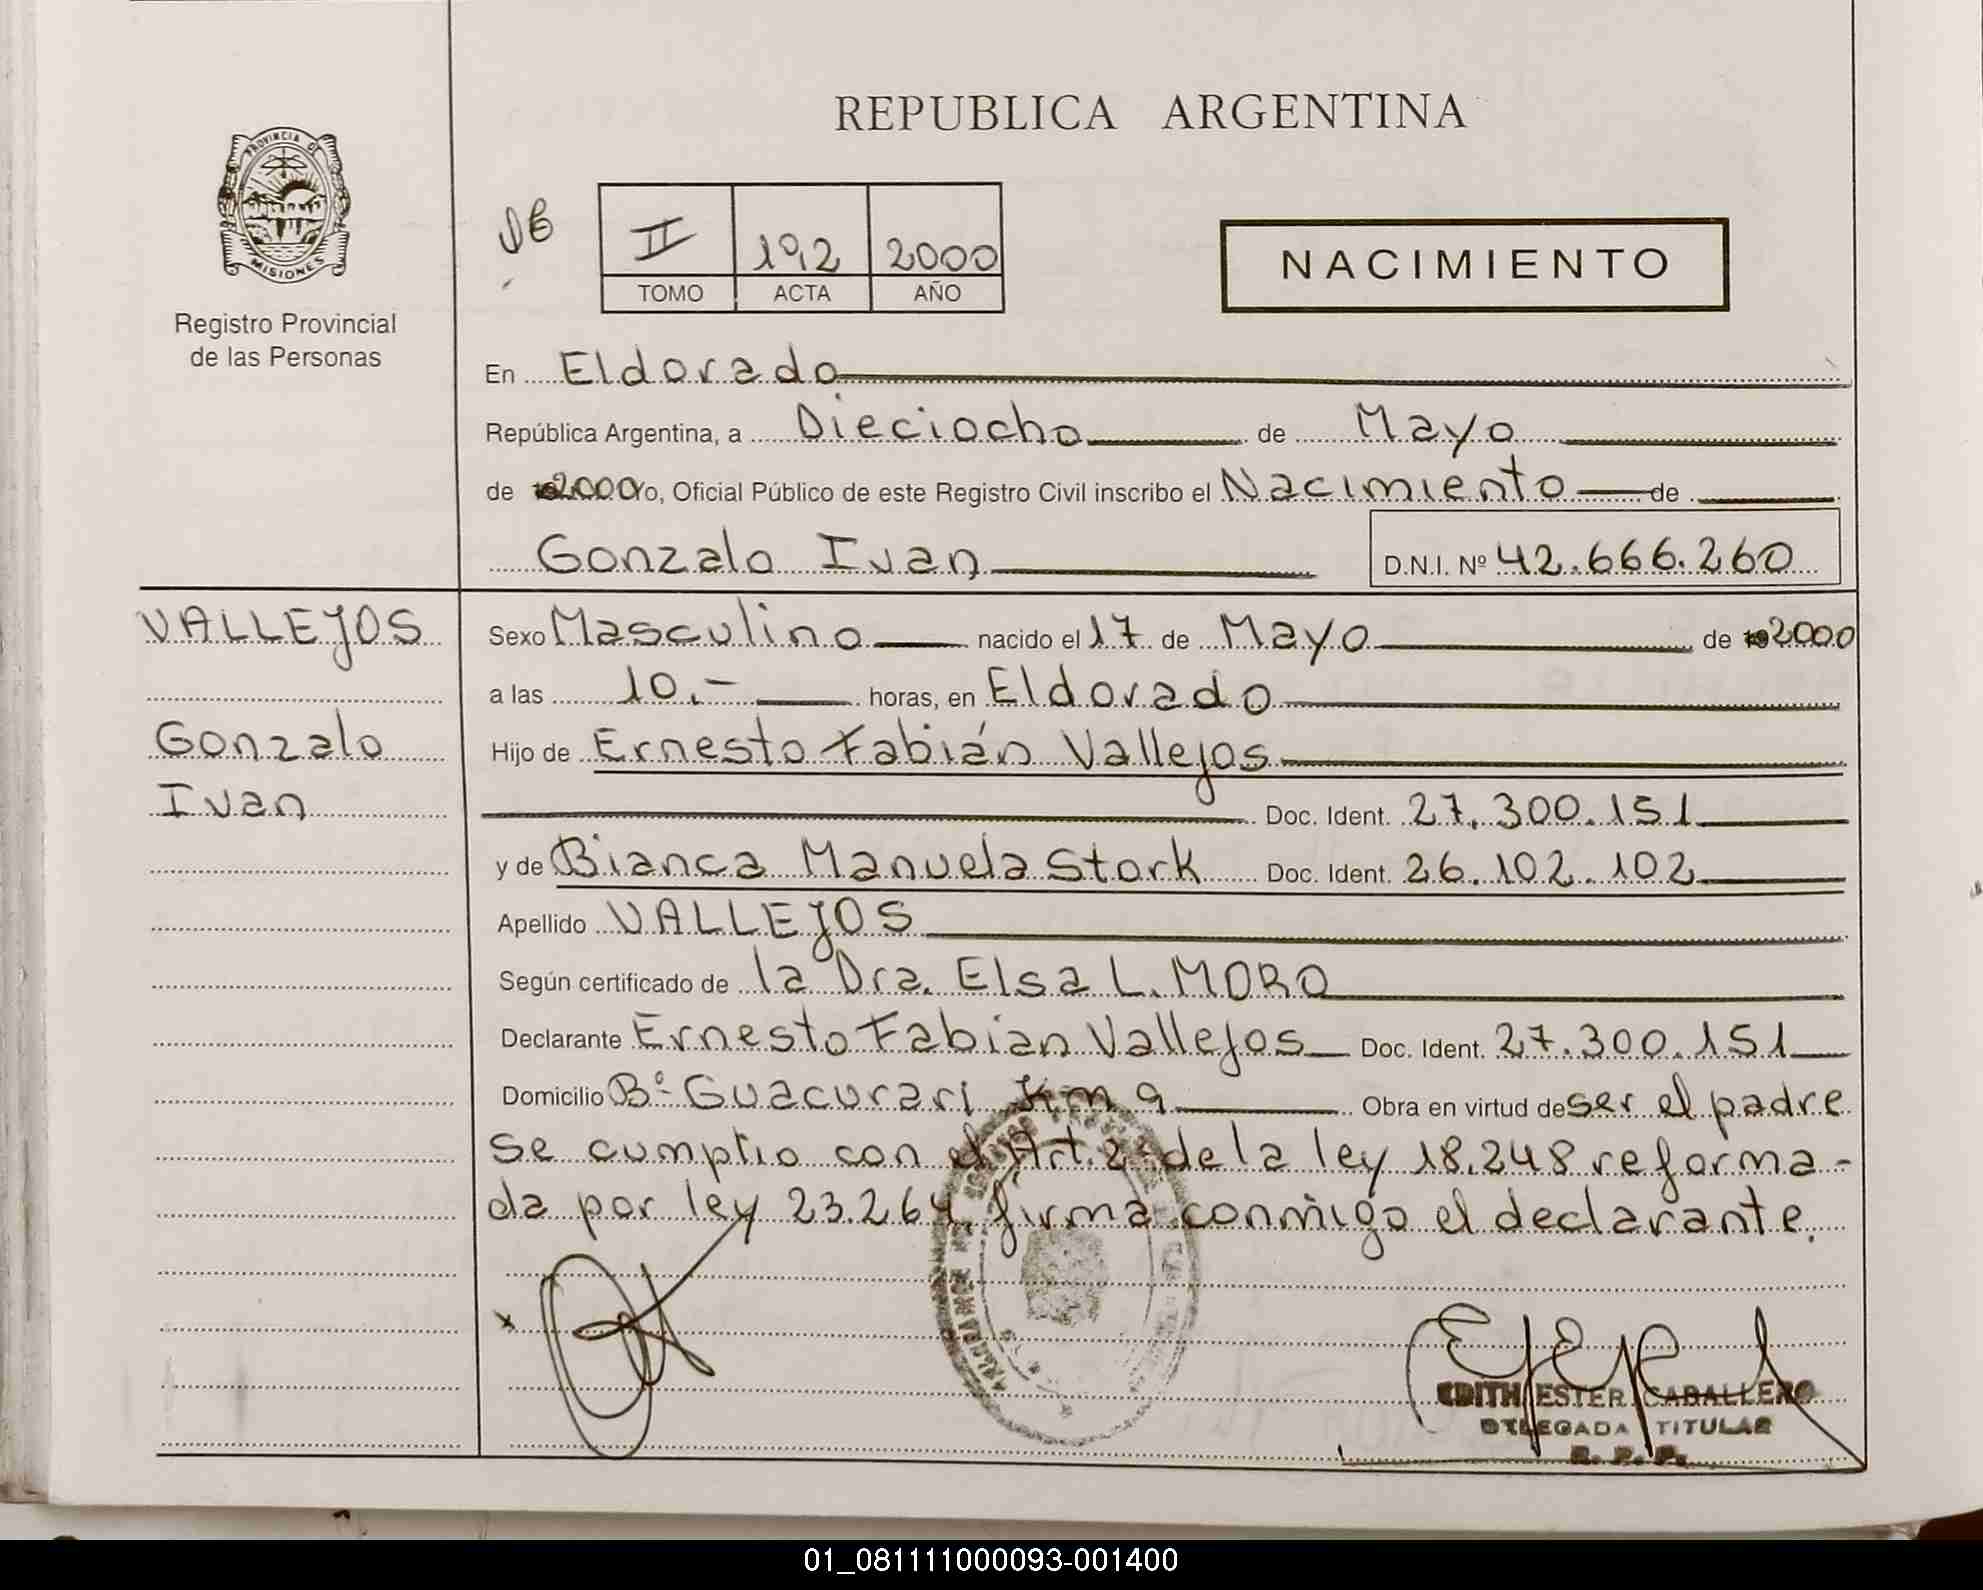 REPUBLICA ARGENTINA
PROVINCIA DE
MISIONES
Registro Provincial
de las Personas
II 192 2000
TOMO ACTA AÑO
NACIMIENTO
En Eldorado
República Argentina, a Dieciocho de Mayo
de 2000 Yo, Oficial Público de este Registro Civil inscribo el Nacimiento de
Gonzalo Ivan D.N.I. Nº 42.666.260
VALLEJOS
Gonzalo
Ivan
Sexo Masculino nacido el 17 de Mayo de 2000
a las 10.- horas, en Eldorado
Hijo de Ernesto Fabián Vallejos
Doc. Ident. 27.300.151
y de Bianca Manuela Stork Doc. Ident. 26.102.102
Apellido VALLEJOS
Según certificado de la Dra. Elsa L. MORO
Declarante Ernesto Fabian Vallejos Doc. Ident. 27.300.151
Domicilio Bº Guacurari Km 9 Obra en virtud de ser el padre
se cumplio con el Art. 2º de la ley 18.248 reforma-
da por ley 23.264, firma conmigo el declarante.
EDITH ESTER CABALLERO
DELEGADA TITULAR
R. P. P.
01_081111000093-001400